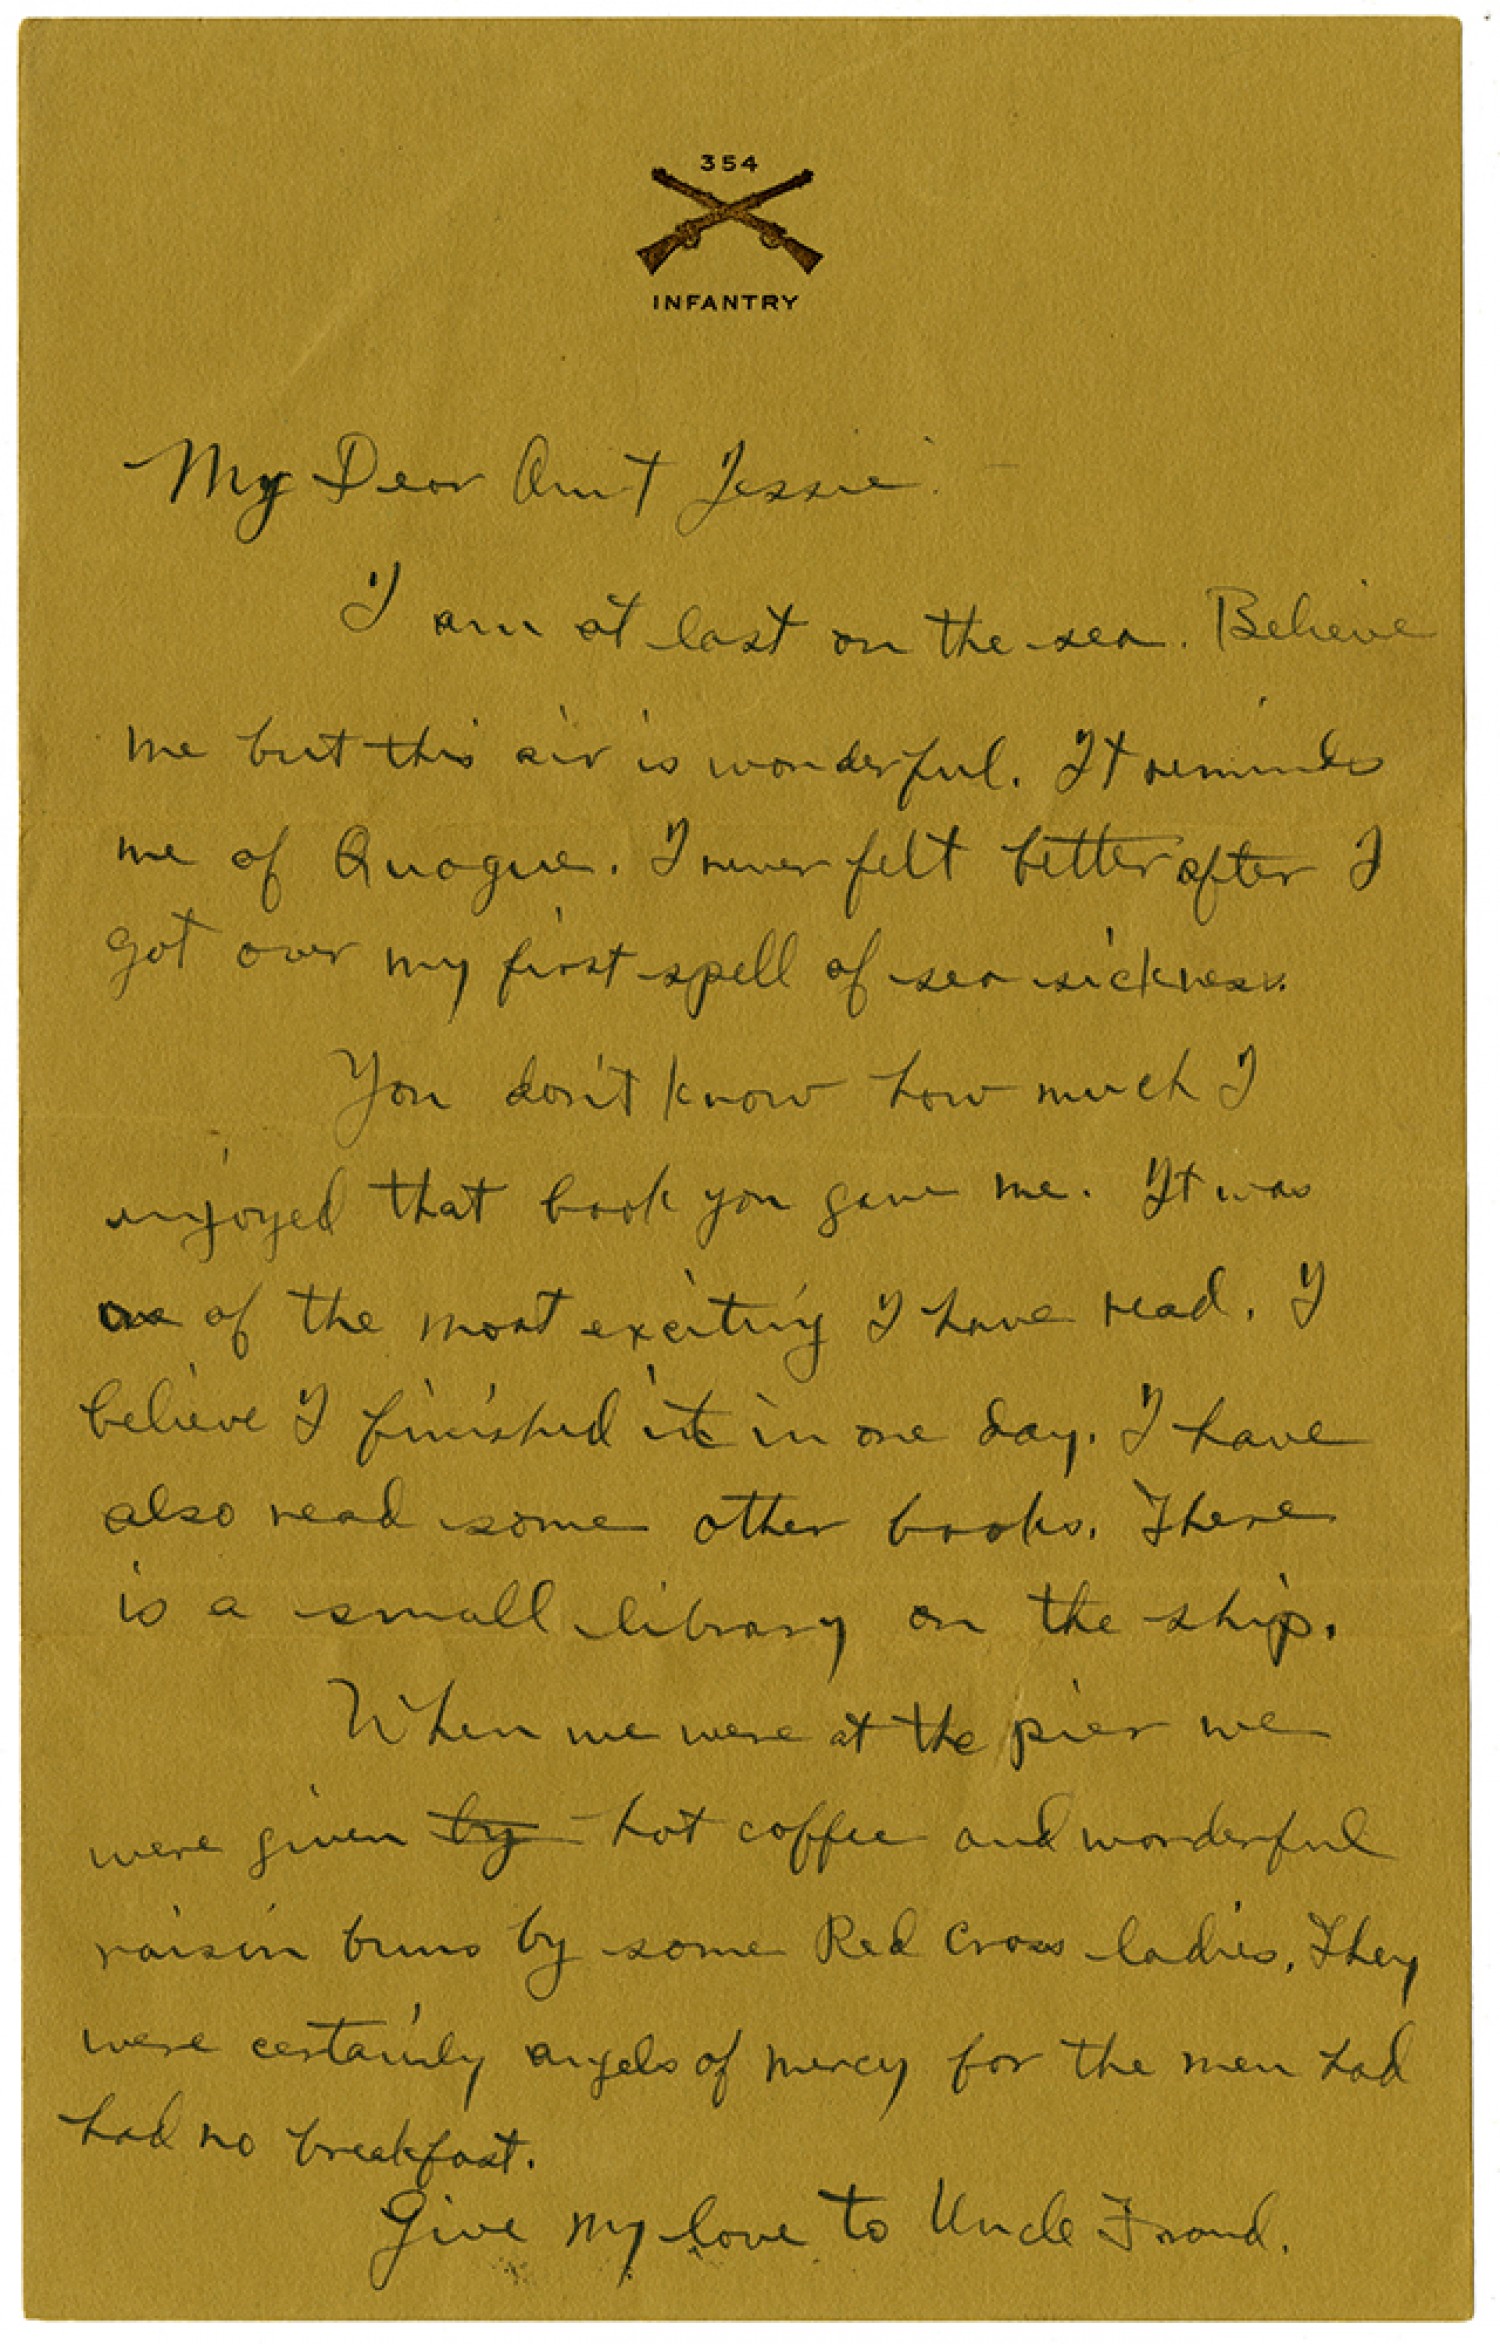 354
INFANTRY
My Dear Aunt Jessie
I am at last on the sea. Believe
me but this air is wonderful. It reminds
me of Quogue. I never felt better after I
got over my first spell of sea sickness.
You don't know how much I
enjoyed that book you gave me. It was
one of the most exciting I have read. I
believe I finished it in one day. I have
also read some other books. There
is a small library on the ship.
When we were at the pier we
were given by hot coffee and wonderful
raisin buns by some Red Cross ladies. They
were certainly angels of mercy for the men had
had no breakfast.
Give my love to Uncle